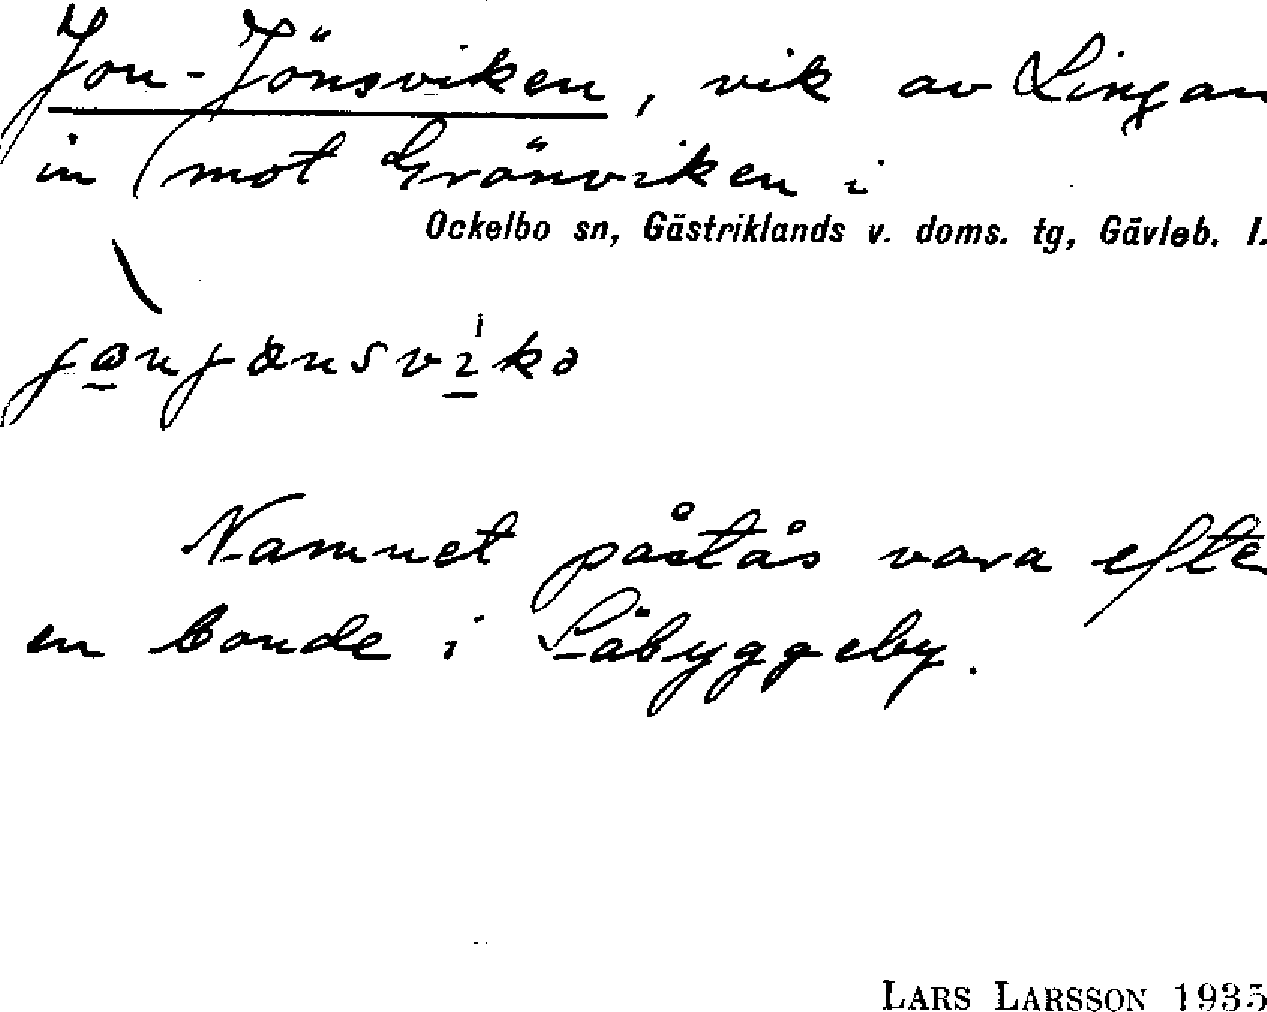 Jon-Jönsviken, vik av Lingan
in mot Grönviken i
Ockelbo sn, Gästriklands v. doms. tg, Gävleb. l.
Namnet påstås vara efte
en bonde i Säbyggeby.
LARS LARSSON 1935